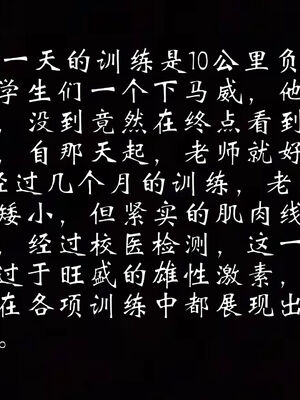 一天的训练是10公里负
学生们一个下马威，他
，没到竟然在终点看到
，自那天起，老师就好
经过几个月的训练，老
矮小，但紧实的肌肉线
，经过校医检测，这一
过于旺盛的雄性激素，
在各项训练中都展现出
。